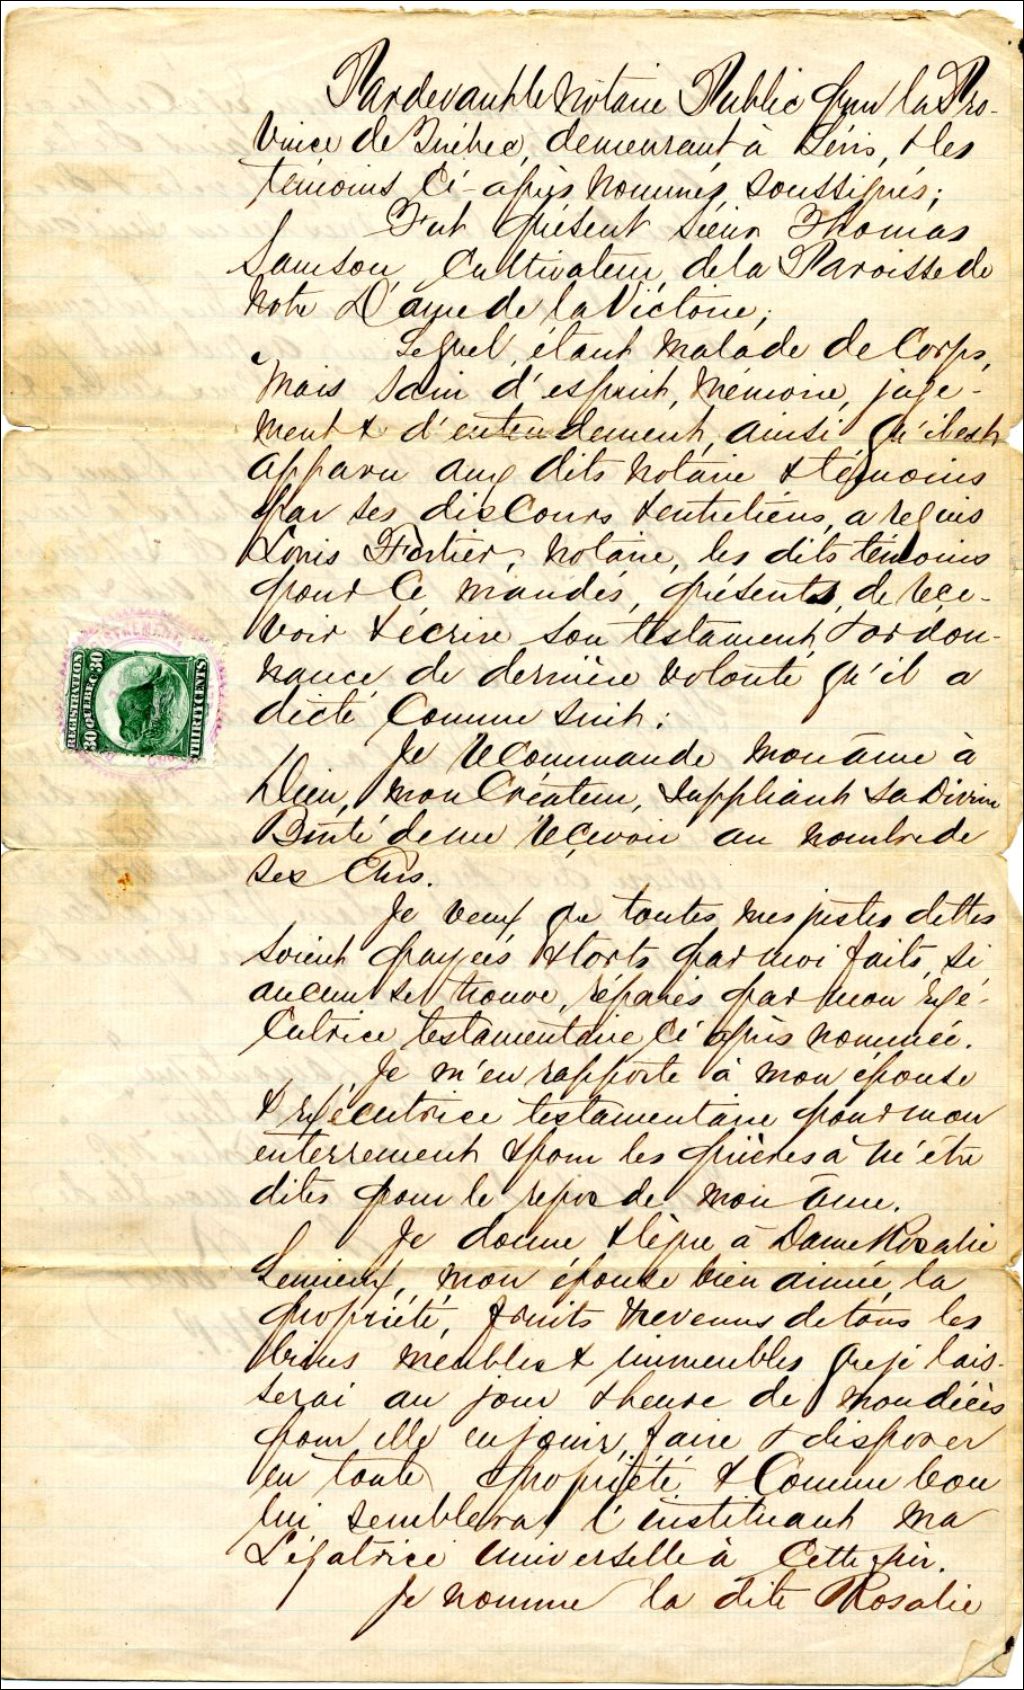 Pardevant le Notaire Public pour la Pro-
vince de Québec, demeurant à Lévis, & les
témoins ci-après nommés, soussignés;
Fut présent Sieur Thomas
Samson, Cultivateur, de la Paroisse de
Notre Dame de la Victoire;
Lequel, étant malade de Corps,
mais sain d'esprit, mémoire, juge-
ment & d'entendement, ainsi qu'il est
apparu aux dits Notaire & témoins
par ses discours & entretiens, a requis
Louis Fortier, Notaire, les dits témoins
pour ce mandés, présents, de reçe-
voir & écrire son testament & ordon-
nance de dernière volonté qu'il a
dicté Comme suit:
Je recommande mon âme à
Dieu, mon Créateur, suppliant sa Divine
Bonté de me reçevoir au nombre de
ses Elus.
Je veux que toutes mes justes dettes
soient payées & torts par moi faits, si
aucun se trouve, réparés par mon exé-
cutrice testamentaire ci après nommée.
Je m'en rapporte à mon épouse
& exécutrice testamentaire pour mon
enterrement & pour les prières à m'être
dites pour le repos de mon âme.
Je donne & lègue à Dame Rosalie
Lemieux, mon épouse bien aimée, la
propriété, fruits & revenus de tous les
biens meubles & immeubles que je lais-
serai au jour & heure de mon décès
pour elle en jouir, faire & disposer
en toute propriété & Comme bon
lui semblera, l'instituant ma
Légatrice universelle à Cette fin.
Je nomme la dite Rosalie
REGISTRATION
30 QUEBEC 30
THIRTY CENTS